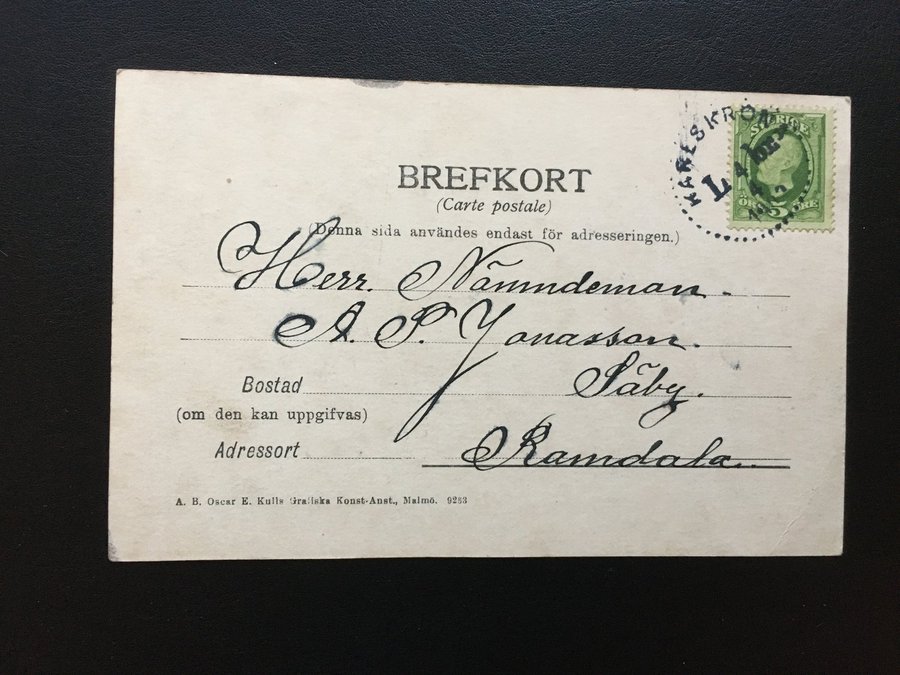 KARLSKRONA
SVERIGE
5
ÖRE
BREFKORT
(Carte postale)
(Denna sida användes endast för adresseringen.)
Herr. Nämndeman.
A. P. Jonasson.
Bostad Säby.
(om den kan uppgifvas)
Adressort Ramdala.
A. B. Oscar E. Kulls Grafiska Konst-Anst., Malmö. 9253